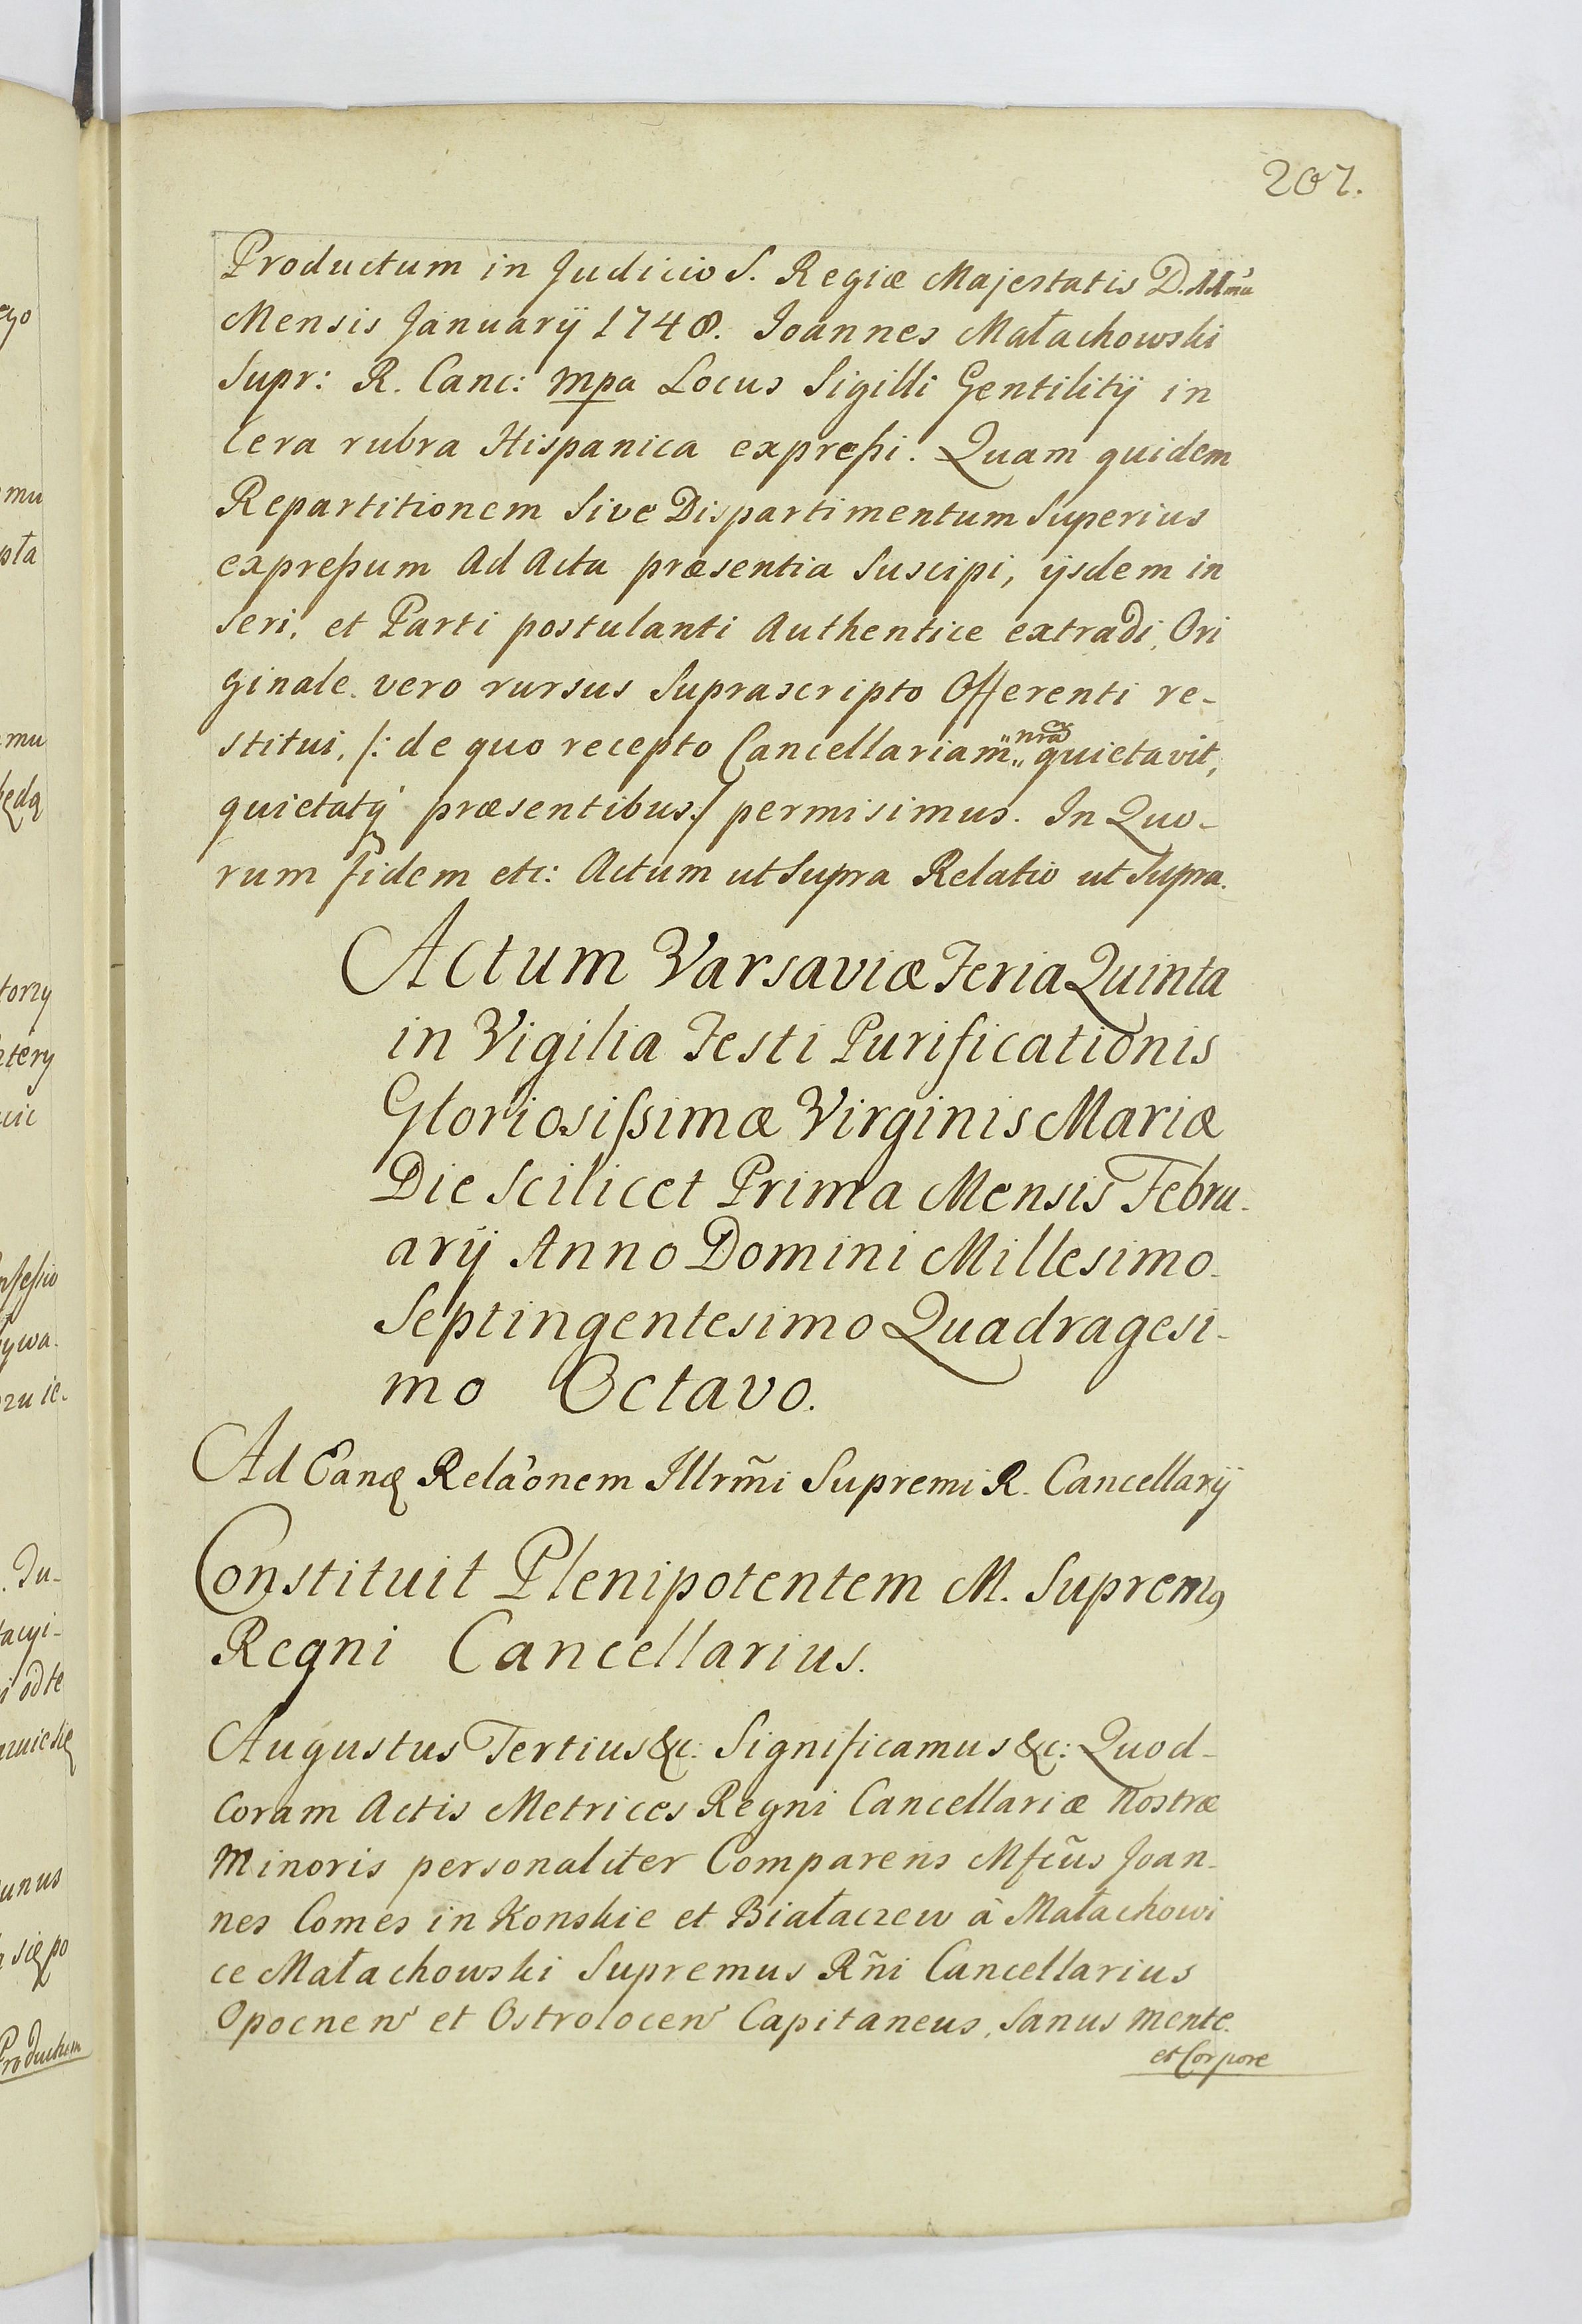 207.
Productum in Judicio S. Regiæ Majestatis D. 11ma
Mensis Januarÿ 1748. Joannes Małachowski
Supr: R. Canc: mpa Locus Sigilli Gentilitÿ in
Cera rubra Hispanica expreſsi. Quam quidem
Repartitionem Sive Dispartimentum Superius
expreſsum ad Acta præsentia Suscipi, ÿsdem in
seri, et Parti postulanti Authentice extradi, Ori
ginale vero rursus Suprascripto Offerenti re-
stitui, /: de quo recepto Cancellariam nrã quietavit,
quietatq̃ præsentibus :/ permisimus. In Quo-
rum fidem etc: Actum ut Supra Relatio ut Supra.
Actum Varsaviæ Feria Quinta
in Vigilia Festi Purificationis
Gloriosiſsimæ Virginis Mariæ
Die Scilicet Prima Mensis Febru-
arÿ Anno Domini Millesimo
Septingentesimo Quadragesi-
mo Octavo.
Ad Eanđ Rela'onem Illrm̃i Supremi R. Cancellarÿ
Constituit Plenipotentem M. Supremꝰ
Regni Cancellarius.
Augustus Tertius &c: Significamus &c: Quod
Coram Actis Metrices Regni Cancellariæ Nostræ
Minoris personaliter Comparens Mfcũs Joan-
nes Comes in Konskie et Białaczew à Małachowi
ce Małachowski Supremus Rñi Cancellarius
Opocnen et Ostrolocen Capitaneus, Sanus mente
et Corpore
mu
mu
torzy
ktery
ywa
Du-
i odte
się po
Productum